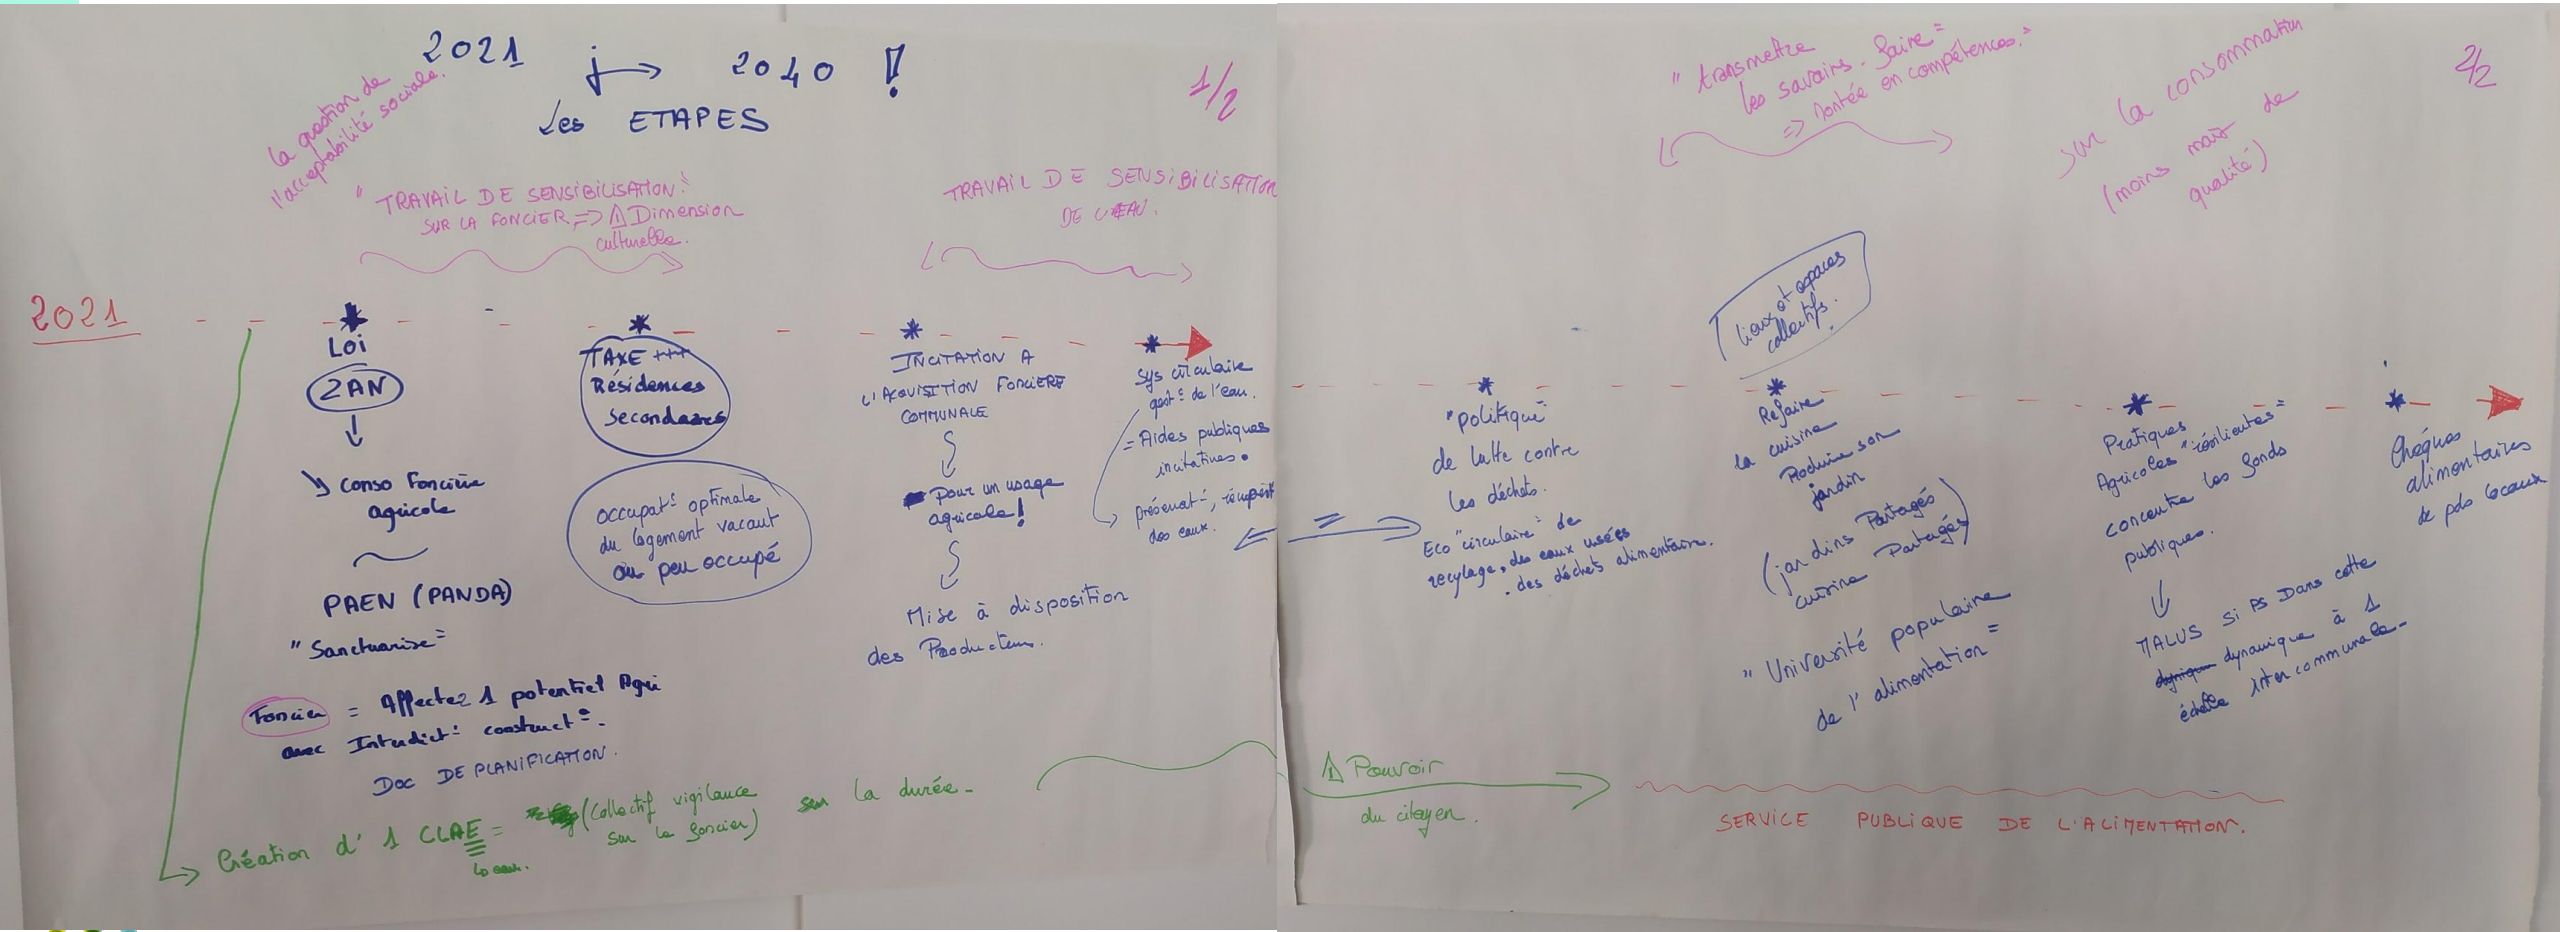 2021 → 2040 !
Les ETAPES
1/2
la question de
l'acceptabilité sociale.
"TRAVAIL DE SENSIBILISATION"
SUR LA FONCIER => Dimension
culturelle.
TRAVAIL DE SENSIBILISATION
DE L'EAU.
2021
Loi
ZAN
↓
↘ conso Foncière
agricole
PAEN (PANDA)
"Sanctuarise"
Foncier = Affecter 1 potentiel Agri
avec Interdict° construct°.
DOC DE PLANIFICATION.
TAXE +++
Résidences
Secondaires
occupat° optimale
du logement vacant
ou peu occupé
INCITATION A
L'ACQUISITION FONCIERE
COMMUNALE
Pour un usage
agricole !
Mise à disposition
des Producteurs.
Sys circulaire
gest° de l'eau.
= Aides publiques
incitatives.
préservat°,
des eaux.
Création d' 1 CLAE = (Collectif vigilance
sur le foncier)
sur la durée.
2/2
"transmettre
les savoirs-faire"
=> Montée en compétences."
sur la consommation
(moins mais de
qualité)
Lieux et espaces
collectifs.
"politique"
de lutte contre
les déchets.
Eco "circulaire" de
recylage. des eaux usées
. des déchets alimentaire.
Refaire
la cuisine
Produire son
jardin
(jardins Partagés
cuisine Partagés)
"Université populaire
de l'alimentation"
Pratiques
Agricoles "résilientes"
concentre les fonds
publiques.
↓
MALUS si PS Dans cette
dynamique à 1
échelle intercommunale.
Chéques
alimentaires
de pdts locaux
Pouvoir
du citoyen.
SERVICE PUBLIQUE DE L'ALIMENTATION.